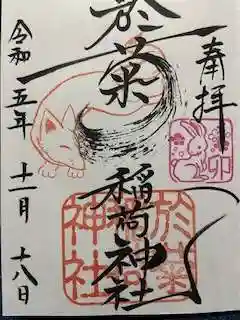 奉拝
卯
於菊
稲荷神社
於菊稲荷神社
令和五年十一月十八日